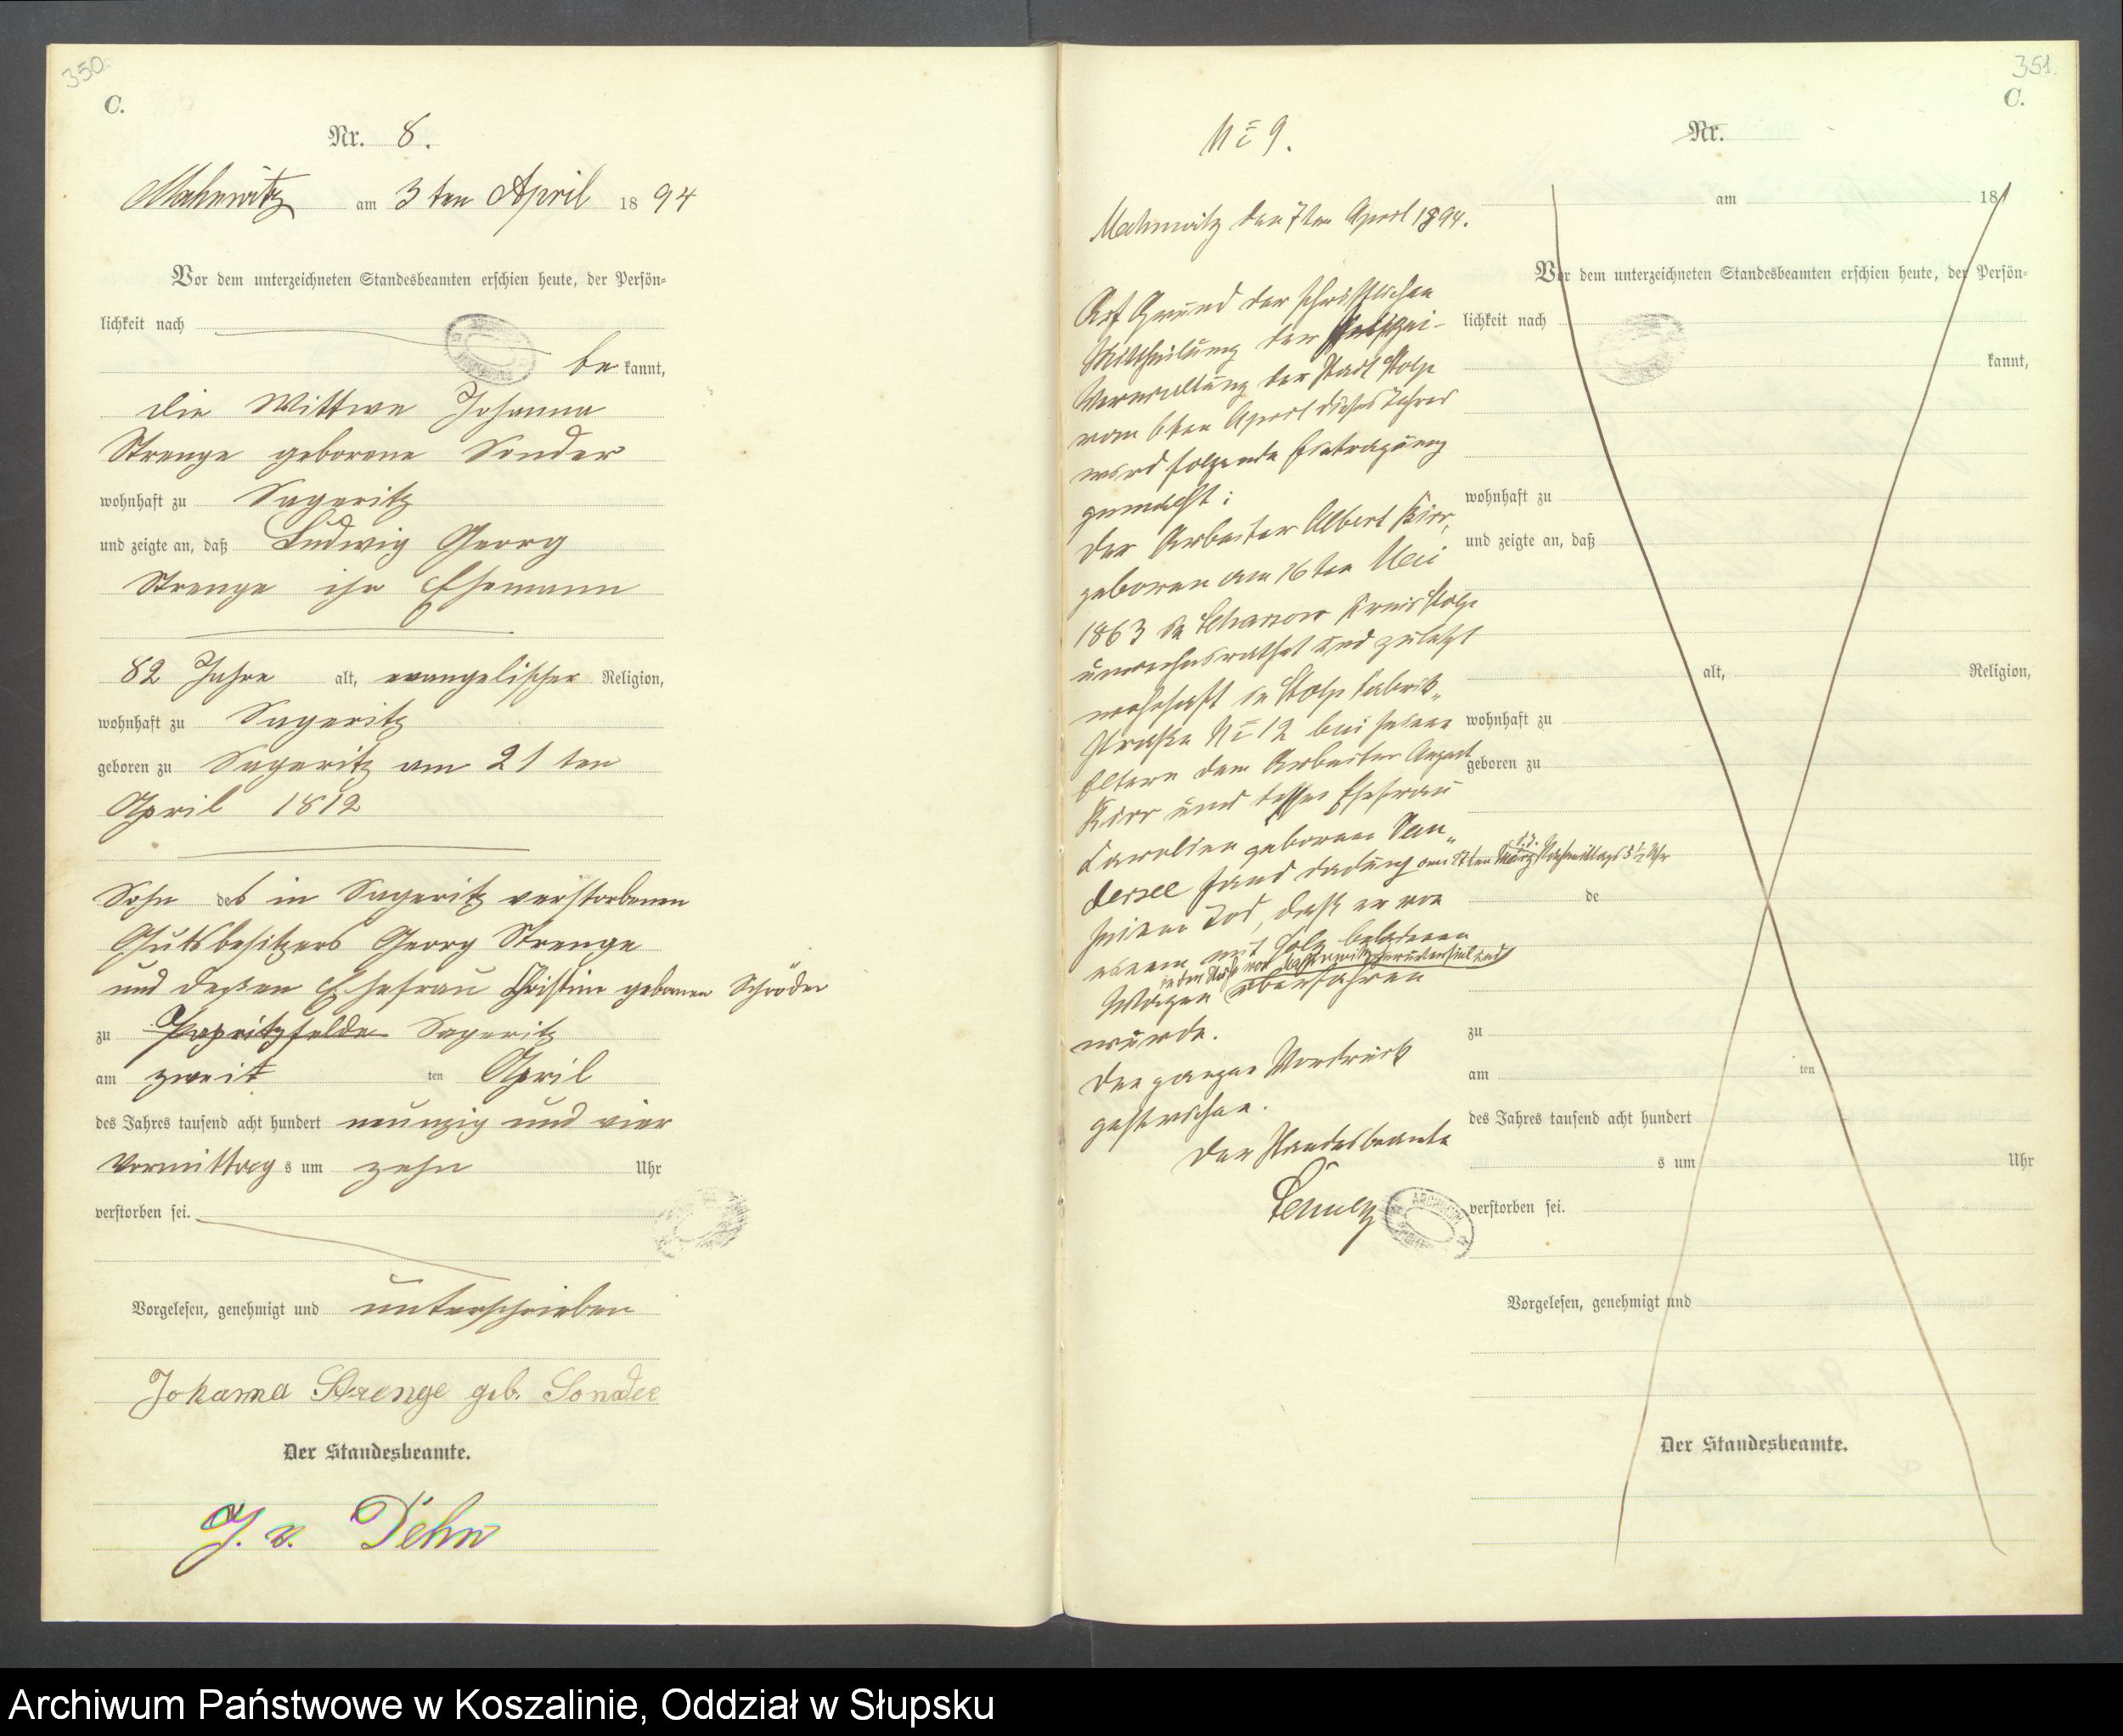 350.
C.
Nr. 8.
Machmitz am 3ten April 1894
Vor dem unterzeichneten Standesbeamten erschien heute, der Persön-
lichkeit nach
be kannt,
die Wittwe Johanna
Strenge geborene Sonder
wohnhaft zu Sageritz
und zeigte an, daß Ludwig Georg
Strenge ihr Ehemann
82 Jahre alt, evangelischer Religion,
wohnhaft zu Sageritz
geboren zu Sageritz am 21ten
April 1812
Sohn des in Sageritz verstorbenen
Gutsbesitzers Georg Strenge
und dessen Ehefrau Christine geborenen Schröder
zu Sageritz
am zweit ten April
des Jahres tausend acht hundert neunzig und vier
Vormittags um zehn Uhr
verstorben sei.
Vorgelesen, genehmigt und unterschrieben
Johanna Strenge geb. Sonder
Der Standesbeamte.
J. v. Dehn
351.
C.
No 9.
Machmitz den 7ten April 1894.
Auf Grund der schriftlichen
Mittheilung der Polizei-
Verwaltung der Stadt Stolp
vom 6ten April dieses Jahres
wird folgende Eintragung
gemacht:
Der Arbeiter Albert Kirr,
geboren am 16ten Mai
1863 in Kreis Stolp
unverheirathet und zuletzt
wohnhaft in Stolp Fabrik-
straße No 12 bei seinen
Eltern dem Arbeiter August
Kirr und dessen Ehefrau
Caroline geborene
fand dadurch am 27ten März d. J. Nachmittags 3½ Uhr
seinen Tod, daß er von
einem mit Holz beladenen
Wagen in der Nähe von herunterfiel und
überfahren
wurde.
Der ganze Vordruck
gestrichen.
Der Standesbeamte
Schulz
Nr.
am 18
Vor dem unterzeichneten Standesbeamten erschien heute, der Persön-
lichkeit nach
kannt,
wohnhaft zu
und zeigte an, daß
alt, Religion,
wohnhaft zu
geboren zu
de
zu
am ten
des Jahres tausend acht hundert
s um Uhr
verstorben sei.
Vorgelesen, genehmigt und
Der Standesbeamte.
Archiwum Państwowe w Koszalinie, Oddział w Słupsku